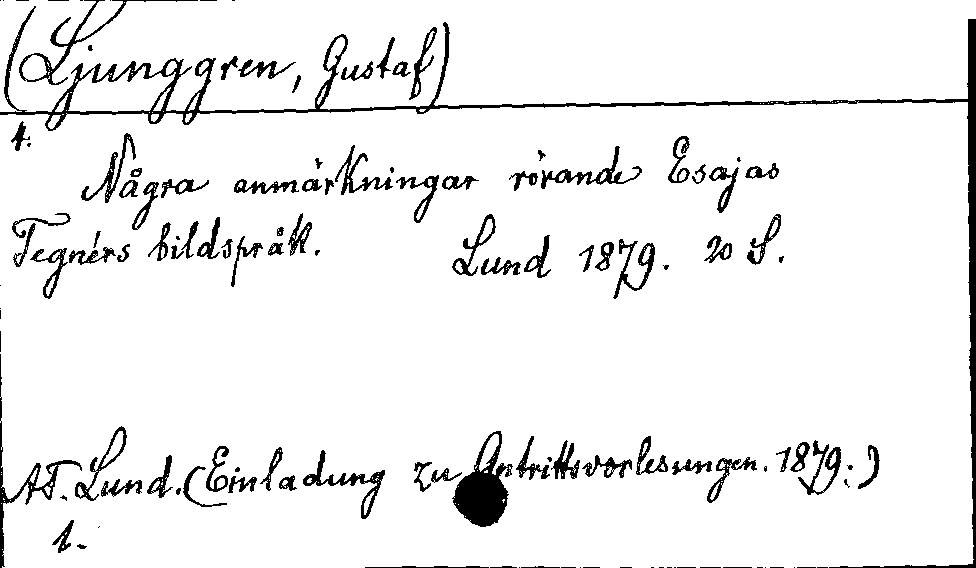 (Ljunggren, Gustaf)
4.
Några anmärkningar rörande Esajas
Tegnérs bildspråk. Lund 1879. 20 S.
AT. Lund. (Einladung zu Antrittsvorlesungen. 1879.)
1.